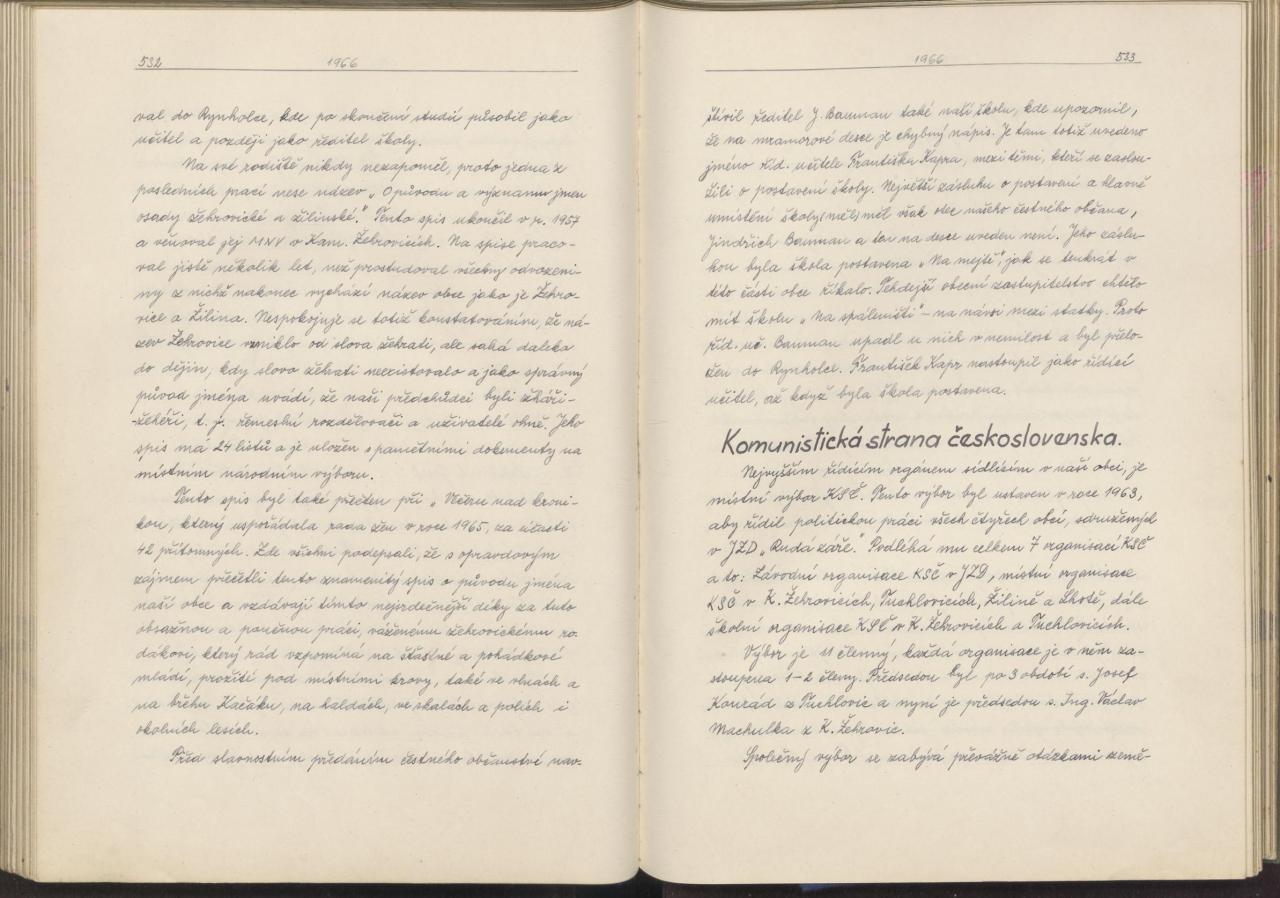 532 1966
val do Rynholce, kde po skončení studií působil jako
učitel a později jako ředitel školy.
Na své rodiště nikdy nezapoměl, proto jedna z
posledních prací nese název „O původu a významu jmen
osady žehrovické a žilinské." Tento spis ukončil v r. 1957
a věnoval jej MNV v Kam. Žehrovicích. Na spise praco-
val jistě několik let, než prostudoval všechny odvozeni-
ny z nichž nakonec vychází název obce jako je Žehro-
vice a Žilina. Nespokojuje se totiž konstatováním, že ná-
zev Žehrovice vzniklo od slova žehrati, ale sahá daleko
do dějin, kdy slovo žehrati neexistovalo a jako správný
původ jména uvádí, že naši předchůdci byli žháři-
-žehéři, t. j. řemeslní rozdělovači a uživatelé ohně. Jeho
spis má 24 listů a je uložen s pamětními dokumenty na
místním národním výboru.
Tento spis byl také přečten při „Večeru nad kroni-
kou, který uspořádala rada žen v roce 1965, za účasti
42 přítomných. Zde všichni podepsali, že s opravdovým
zájmem přečětli tento znamenitý spis o původu jména
naší obce a vzdávají tímto nejsrdečnější díky za tuto
obsažnou a poučnou práci, váženému žehrovickému ro-
dákovi, který rád vzpomíná na šťastné a pohádkové
mládí, prožité pod místními krovy, také ve vlnách a
na břehu Kačáku, na haldách, ve skalách a polích i
okolních lesích.
Před slavnostním předáním čestného občanství nav-
1966 533
štívil ředitel J. Bauman také naší školu, kde upozornil,
že na mramorové desce je chybný nápis. Je tam totiž uvedeno
jméno říd. učitele Františka Kapra, mezi těmi, kteří se zaslou-
žili o postavení školy. Největší zásluhu o postavení a hlavně
umístění školy(měl)měl však otec našeho čestného občana,
Jindřich Bauman a ten na desce uveden není. Jeho záslu-
hou byla škola postavena „Na mejtě", jak se tenkrát v
této části obce říkalo. Tehdejší obecní zastupitelstvo chtělo
mít školu „Na spáleništi" – na návsi mezi statky. Proto
říd. uč. Bauman upadl u nich v nemilost a byl přelo-
žen do Rynholce. František Kapr nastoupil jako řídící
učitel, až když byla škola postavena.
Komunistická strana československa.
Nejvyšším řídícím orgánem sídlícím v naší obci, je
místní výbor KSČ. Tento výbor byl ustaven v roce 1963,
aby řídil politickou práci všech čtyřech obcí, sdružených
v JZD „Rudá záře." Podléhá mu celkem 7 organisací KSČ
a to: Závodní organisace KSČ v JZD, místní organisace
KSČ v K. Žehrovicích, Tuchlovicích, Žilině a Lhotě, dále
školní organisace KSČ v K. Žehrovicích a Tuchlovicích.
Výbor je 11 členný, každá organisace je v něm za-
stoupena 1-2 členy. Předsedou byl po 3 období s. Josef
Konrád z Tuchlovic a nyní je předsedou s. Ing. Václav
Machulka z K. Žehrovic.
Společný výbor se zabývá převážně otázkami země-